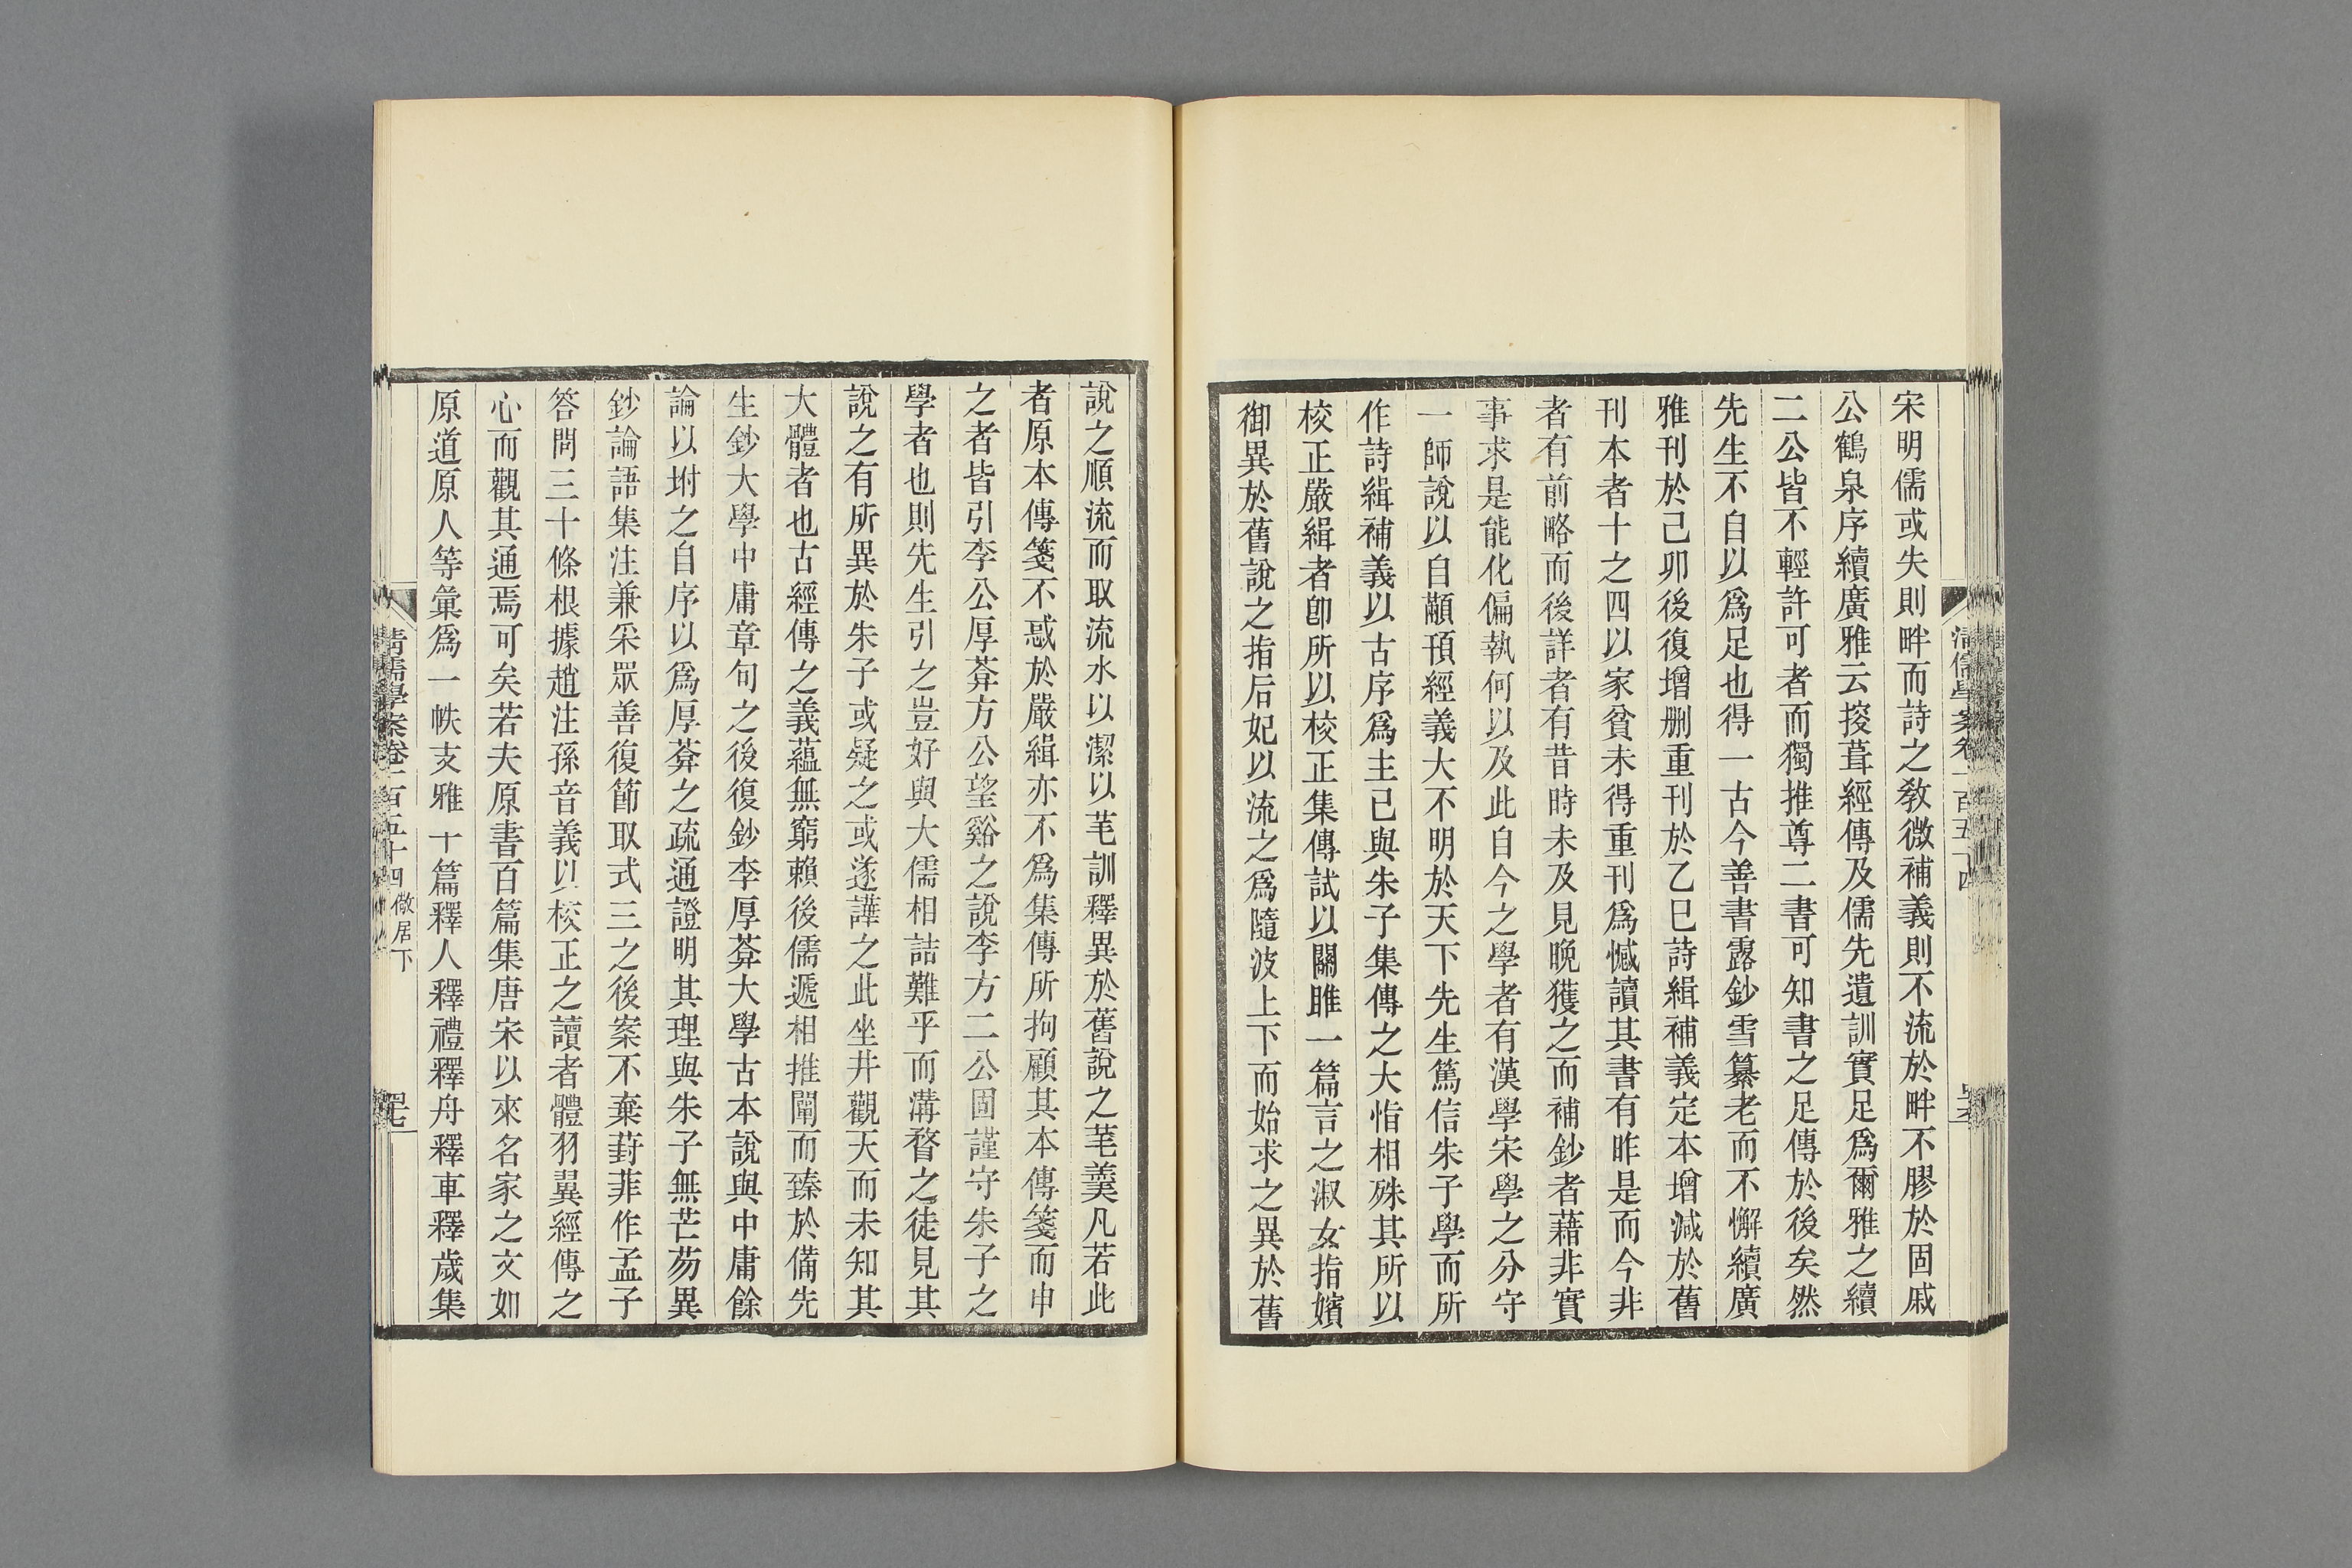 宋明儒或失則畔而詩之敎微補義則不流於畔不膠於固戚
公鶴泉序續廣雅云掇葺經傳及儒先遺訓實足爲爾雅之續
二公皆不輕許可者而獨推尊二書可知書之足傳於後矣然
先生不自以爲足也得一古今善書露鈔雪纂老而不懈續廣
雅刊於己卯後復增删重刊於乙巳詩緝補義定本增減於舊
刊本者十之四以家貧未得重刊爲憾讀其書有昨是而今非
者有前略而後詳者有昔時未及見晚獲之而補鈔者藉非實
事求是能化偏執何以及此自今之學者有漢學宋學之分守
一師說以自顢頇經義大不明於天下先生篤信朱子學而所
作詩緝補義以古序爲主已與朱子集傳之大恉相殊其所以
校正嚴緝者卽所以校正集傳試以關雎一篇言之淑女指嬪
御異於舊說之指后妃以流之爲隨波上下而始求之異於舊
清儒學案卷一百五十四
說之順流而取流水以潔以芼訓釋異於舊說之芼羹凡若此
者原本傳箋不惑於嚴緝亦不爲集傳所拘顧其本傳箋而申
之者皆引李公厚葊方公望谿之說李方二公固謹守朱子之
學者也則先生引之豈好與大儒相詰難乎而溝瞀之徒見其
說之有所異於朱子或疑之或遂譁之此坐井觀天而未知其
大體者也古經傳之義蘊無窮賴後儒遞相推闡而臻於備先
生鈔大學中庸章句之後復鈔李厚葊大學古本說與中庸餘
論以坿之自序以爲厚葊之疏通證明其理與朱子無芒芴異
鈔論語集注兼采眾善復節取式三之後案不棄葑菲作孟子
答問三十條根據趙注孫音義以校正之讀者體羽翼經傳之
心而觀其通焉可矣若夫原書百篇集唐宋以來名家之文如
原道原人等彙爲一帙支雅十篇釋人釋禮釋舟釋車釋歲集
清儒學案卷一百五十四 儆居下